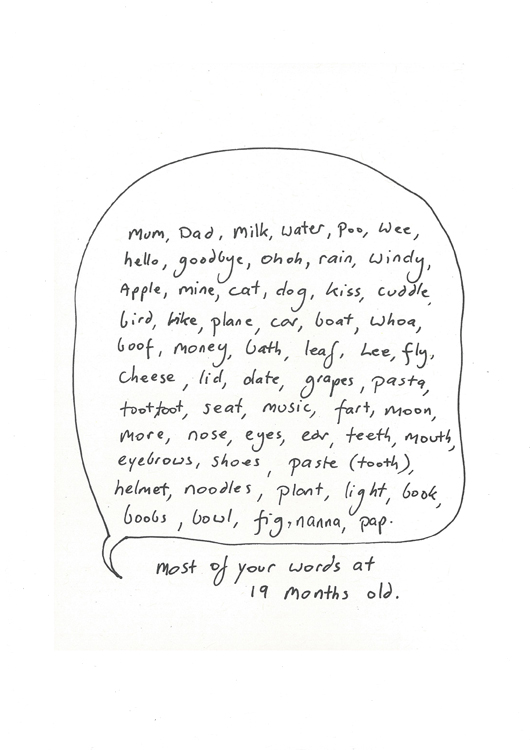 Mum, Dad, Milk, Water, Poo, Wee,
hello, goodbye, ohoh, rain, windy,
Apple, mine, cat, dog, kiss, cuddle,
bird, bike, plane, car, boat, whoa,
boof, money, bath, leaf, fly,
Cheese, lid, date, grapes, pasta,
toottoot, seat, music, fart, moon,
more, nose, eyes, ear, teeth, mouth,
eyebrows, shoes, paste (tooth),
helmet, noodles, plant, light, book,
boobs, bowl, fig, nanna, pap.
most of your words at
19 months old.